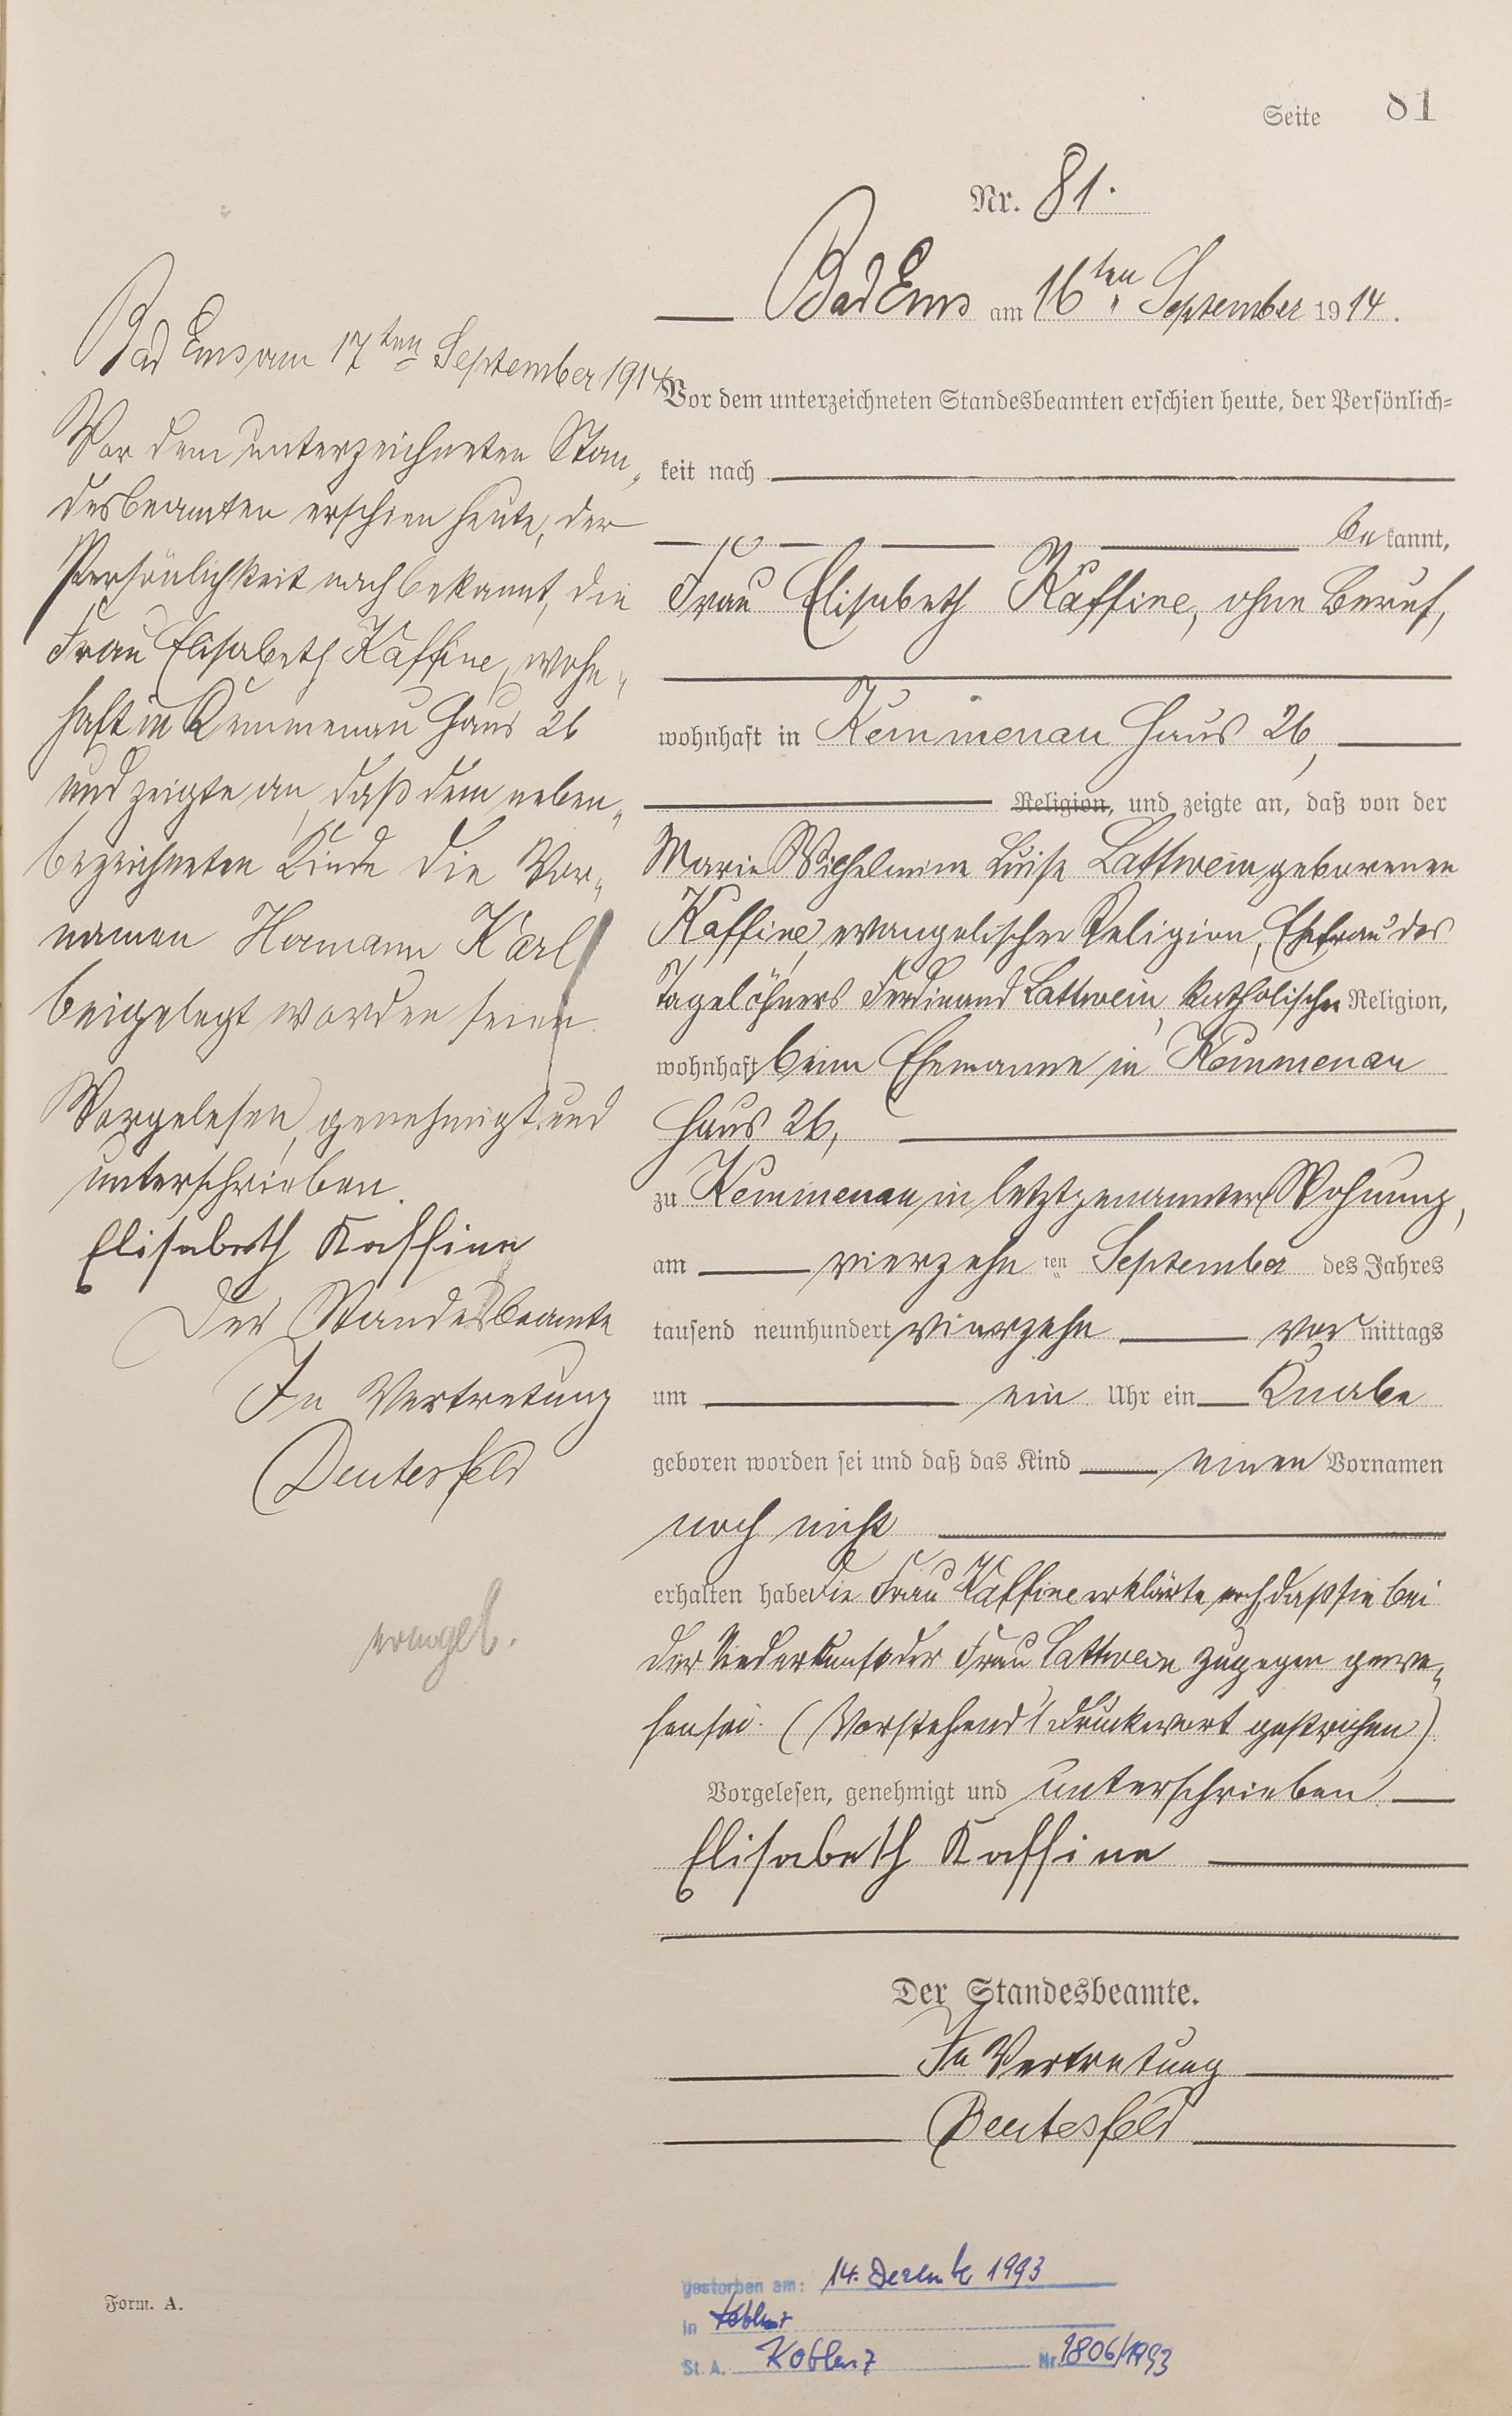 Seite 81
Nr. 81.
Bad Ems am 16ten September 1914.
Vor dem unterzeichneten Standesbeamten erschien heute, der Persönlich-
keit nach
bekannt,
Frau Elisabeth Kaffine, ohne Beruf,
wohnhaft in Kemmenau Haus 26,
Religion, und zeigte an, daß von der
Marie Wilhelmine Luise Lattwein geborenen
Kaffine, evangelischer Religion, Ehefrau des
Tagelöhners Ferdinand Lattwein, katholischer Religion,
wohnhaft beim Ehemanne in Kemmenau
Haus 26,
zu Kemmenau in letztgenannter Wohnung,
am vierzehn ten September des Jahres
tausend neunhundert vierzehn vormittags
um ein Uhr ein Knabe
geboren worden sei und daß das Kind einen Vornamen
noch nicht
erhalten habe. Die Frau Kaffine erklärte noch, daß sie bei
der Niederkunft der Frau Lattwein zugegen gewe„
sen sei. (Vorstehend 1 Druckwort gestrichen)
Vorgelesen, genehmigt und unterschrieben.
Elisabeth Kaffine
Der Standesbeamte.
In Vertretung
Deutesfeld
Bad Ems am 17ten September 1914
Vor dem unterzeichneten Stan„
desbeamten erschien heute, der
Persönlichkeit nach bekannt, die
Frau Elisabeth Kaffine, wohn„
haft in Kemmenau Haus 26
und zeigte an, daß dem neben„
bezeichneten Kinde die Vor„
namen Hermann Karl
beigelegt worden seien.
Vorgelesen, genehmigt und
unterschrieben.
Elisabeth Kaffine
Der Standesbeamte
In Vertretung
Deutesfeld
Form. A.
gestorben am: 14. Dezember 1993
in Koblenz
St. A. Koblenz Nr. 1806/1993